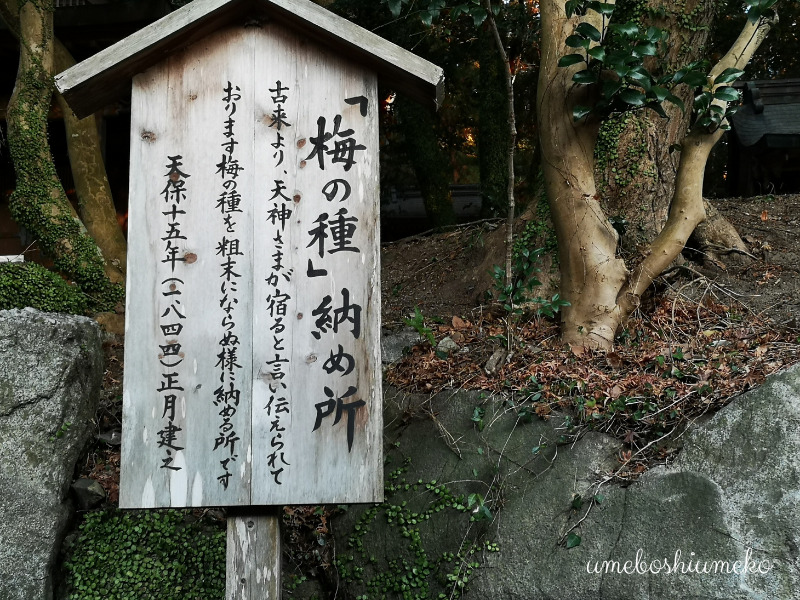 「梅の種」納め所
古来より、天神さまが宿ると言い伝えられて
おります梅の種を粗末にならぬ様に納める所です
天保十五年(一八四四)正月建之
umeboshiumeko